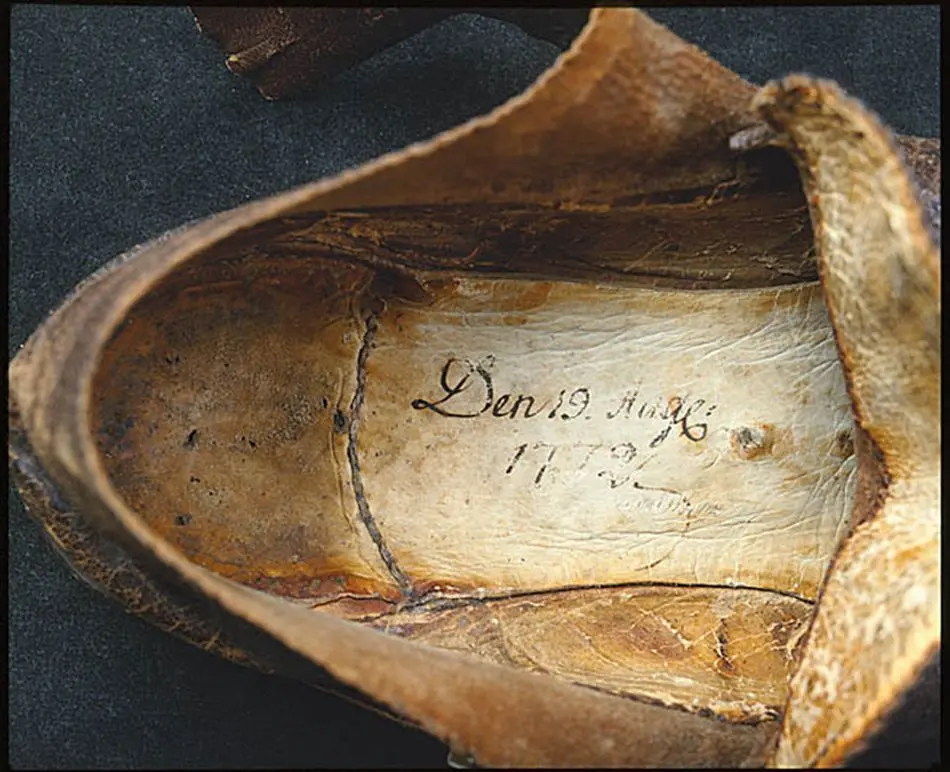 Den 19. Aug:
1772.